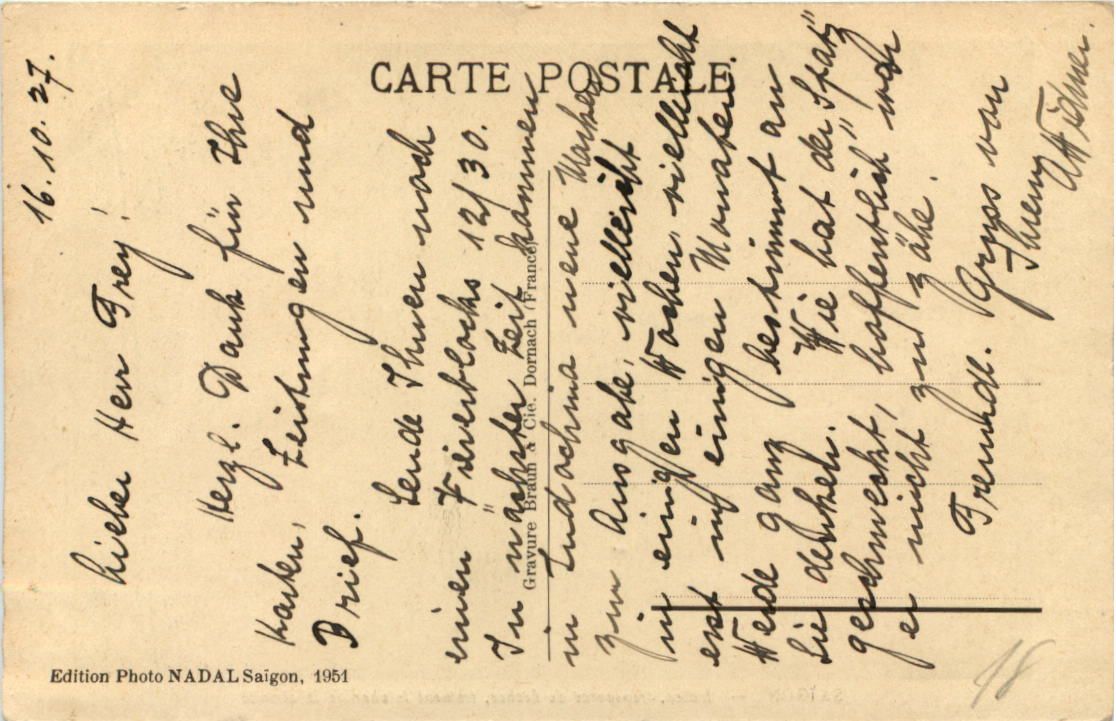 CARTE POSTALE.
16.10.27.
Lieber Herr Frey!
Herzl. Dank für Ihre
Karten, Zeistungen und
Brief.
Sende Ihnen noch
einen Viererblocks 12/30.
In nächster Zeit kommen
in Indochina neue Marken
zur Ausgabe, vielleicht
in einigen Wochen, vielleicht
erst in einigen Monaten.
Werde ganz bestimmt an
Sie denken. Wie hat der "Spatz"
geschmeckt, hoffentlich war
er nicht zu zähe.
Freundl. Gruss von
Ihrem
Widmer.
Gravure Braun & Cie. Dornach (France)
Edition Photo NADAL Saïgon, 1951
18